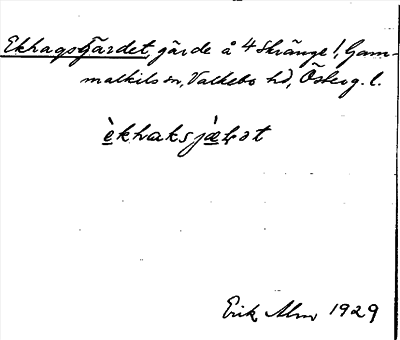 Ekhagsgärdet, gärde å 4 Skränge!, Gam-
malkils sn, Valkebo hd, Österg. l.
è̱khaksjæ̱̀ɽət
Erik Alm 1929